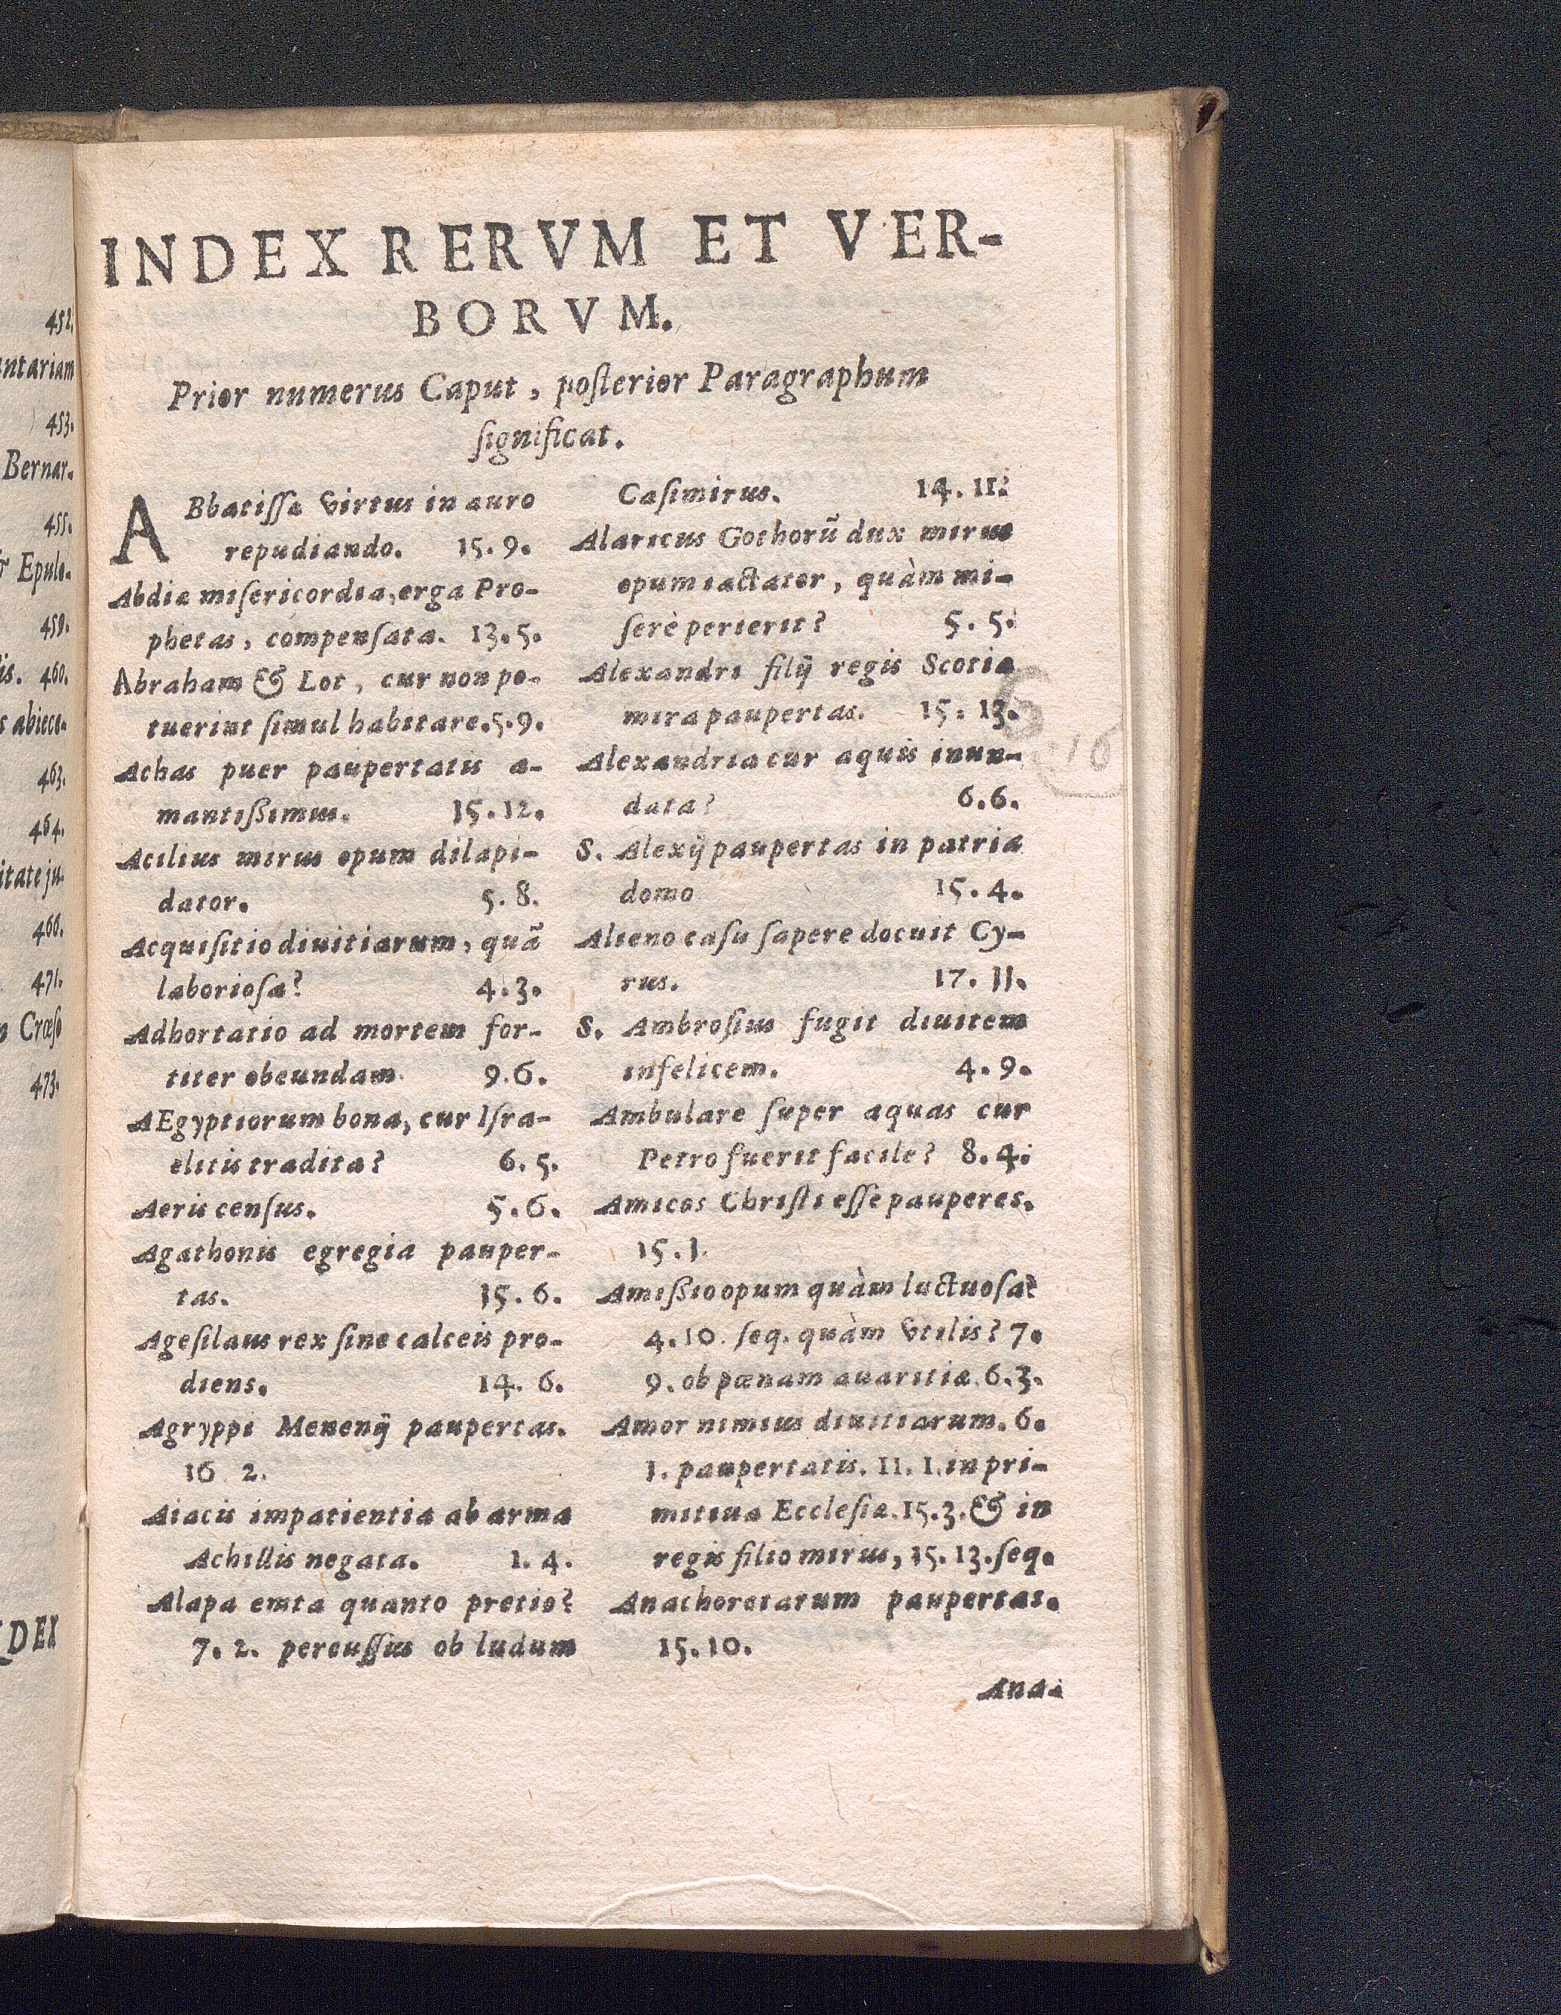 452.
ntariam
453.
Bernar-
455.
Epulo-
459.
is. 460.
s abiece-
463.
464.
itate ju-
466.
471.
n Crœso
473.
DEX
INDEX RERVM ET VER-
BORVM.
Prior numerus Caput, posterior Paragraphum
significat.
ABbatissæ virtus in auro
repudiando. 15. 9.
Abdiæ misericordia, erga Pro-
phetas, compensata. 13. 5.
Abraham & Lot, cur non po-
tuerint simul habitare. 5. 9.
Achas puer paupertatis a-
mantißimus. 15. 12.
Acilius mirus opum dilapi-
dator. 5. 8.
Acquisitio diuitiarum, quā
laboriosa? 4. 3.
Adhortatio ad mortem for-
titer obeundam. 9. 6.
AEgyptiorum bona, cur Isra-
elitis tradita? 6. 5.
Aeris census. 5. 6.
Agathonis egregia pauper-
tas. 15. 6.
Agesilaus rex sine calceis pro-
diens. 14. 6.
Agryppi Menenij paupertas.
16. 2.
Aiacis impatientia ab arma
Achillis negata. 1. 4.
Alapa emta quanto pretio?
7. 2. percussus ob ludum
Casimirus. 14. 11.
Alaricus Gothorū dux mirus
opum iactator, quàm mi-
serè perierit? 5. 5.
Alexandri filij regis Scotiæ
mira paupertas. 15. 13.
Alexandria cur aquis inun-
data? 6. 6.
S. Alexij paupertas in patria
domo 15. 4.
Alieno casu sapere docuit Cy-
rus. 17. 11.
S. Ambrosius fugit diuitem
infelicem. 4. 9.
Ambulare super aquas cur
Petro fuerit facile? 8. 4.
Amicos Christi esse pauperes.
15. 1.
Amißio opum quàm luctuosa?
4. 10. seq. quàm vtilis? 7.
9. ob pœnam auaritiæ. 6. 3.
Amor nimius diuitiarum. 6.
1. paupertatis. 11. 1. in pri-
mitiua Ecclesia. 15. 3. & in
regis filio mirus, 15. 13. seq.
Anachoretarum paupertas.
15. 10.
Ana-